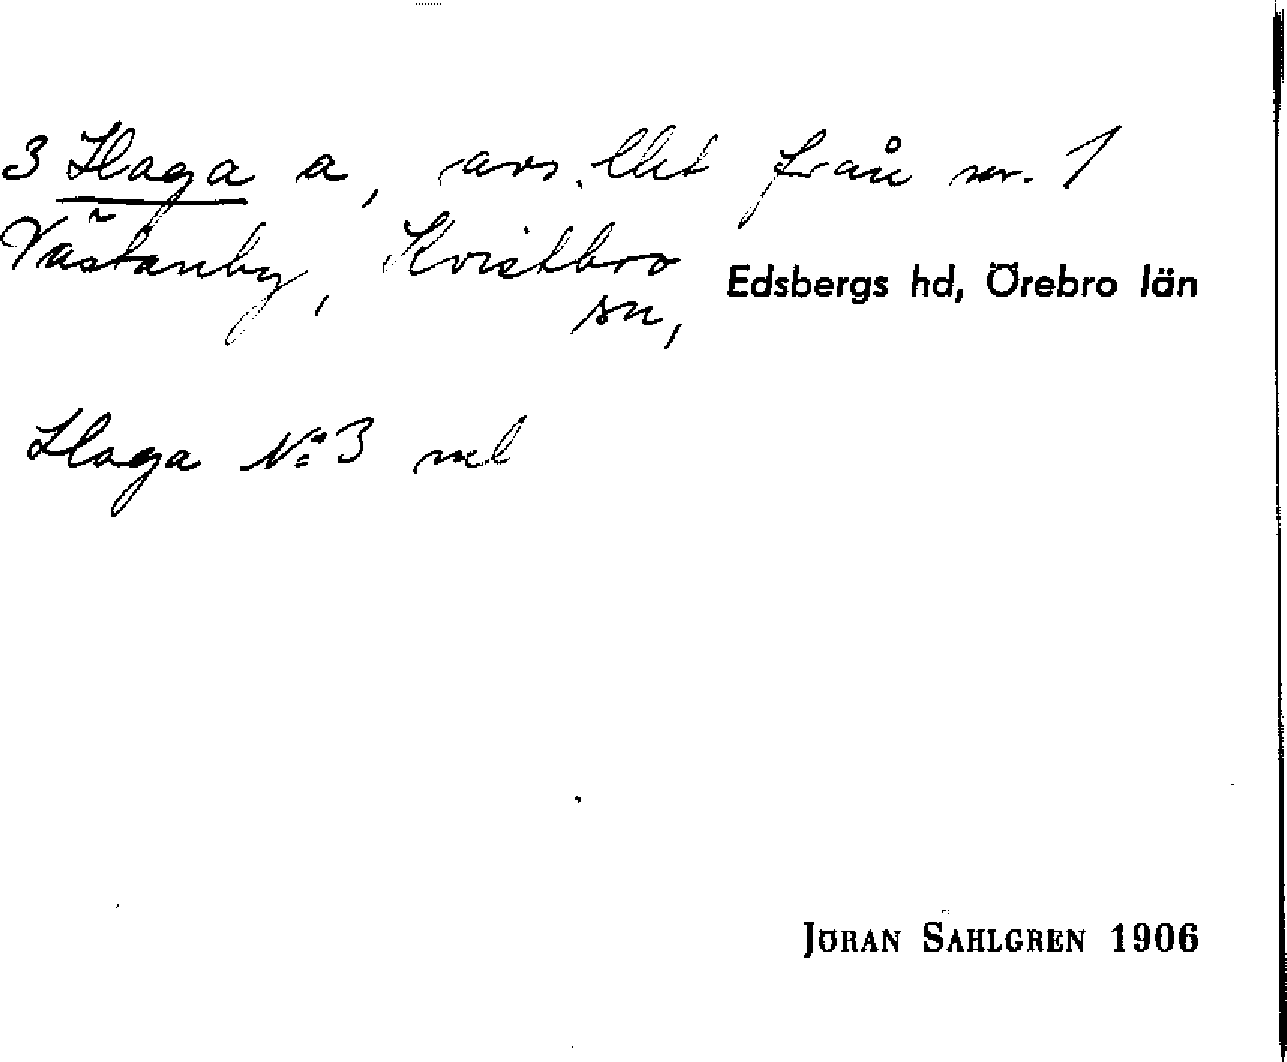 3 Haga a, avs. lht från nr. 1
Västanby, Kvistbro
sn, Edsbergs hd, Örebro län
Haga No 3 mel
JÖRAN SAHLGREN 1906